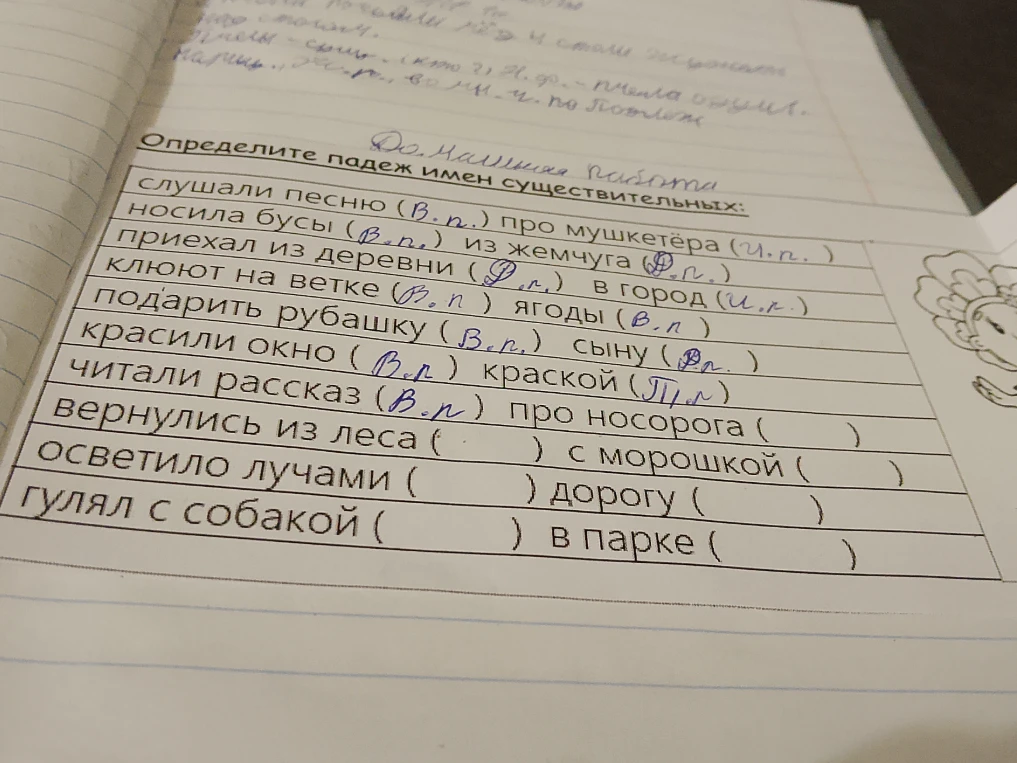 над столом.
Домашняя работа
Определите падеж имен существительных:
слушали песню ( В.п. ) про мушкетёра ( И.п. )
носила бусы ( В.п. ) из жемчуга ( Р.п. )
приехал из деревни ( Р.п. ) в город ( И.п. )
клюют на ветке ( В.п ) ягоды ( В.п )
подарить рубашку ( В.п. ) сыну ( Рп. )
красили окно ( В.п ) краской ( П.п )
читали рассказ ( В.п ) про носорога ( )
вернулись из леса ( ) с морошкой ( )
осветило лучами ( ) дорогу ( )
гулял с собакой ( ) в парке ( )